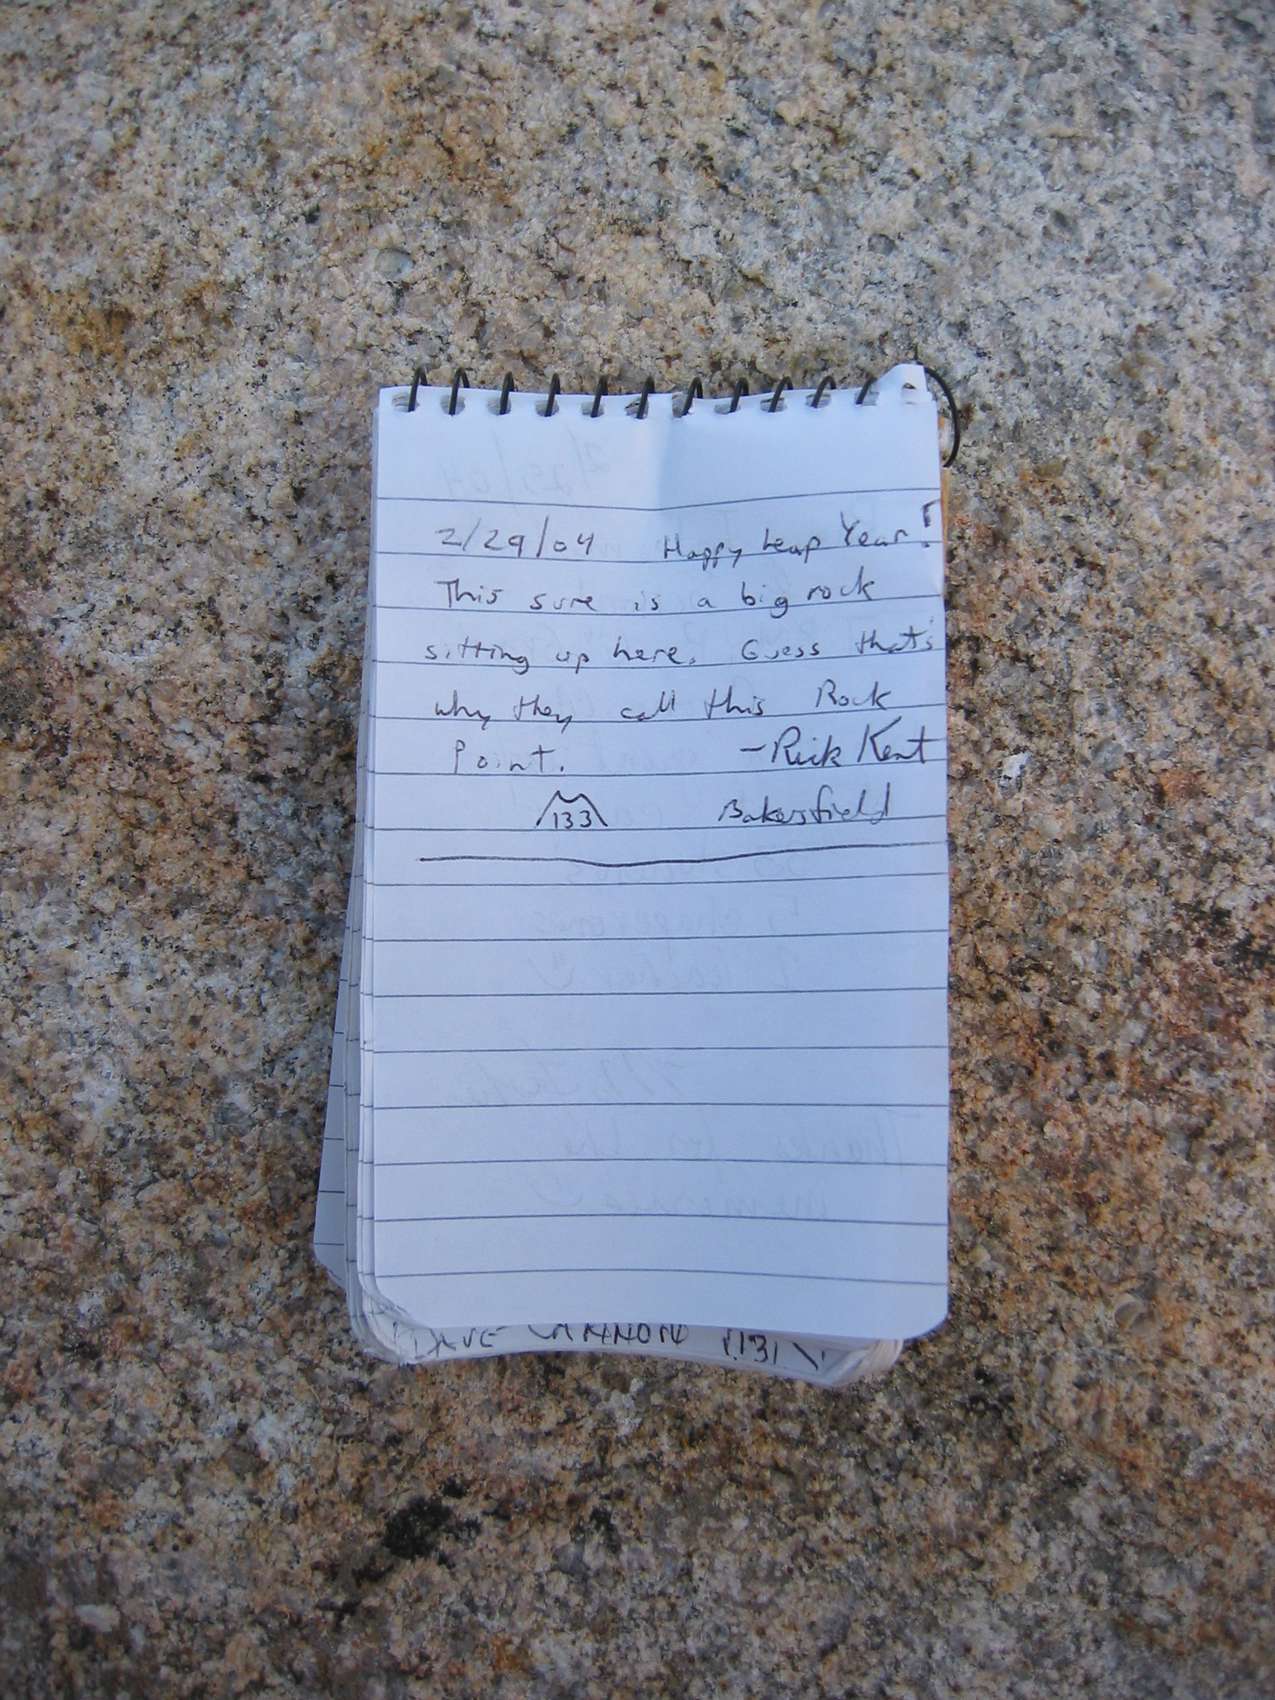 2/29/04 Happy Leap Year!
This sure is a big rock
sitting up here. Guess that's
why they call this Rock
Point. -Rick Kent
133 Bakersfield
DAVE CANNON 131